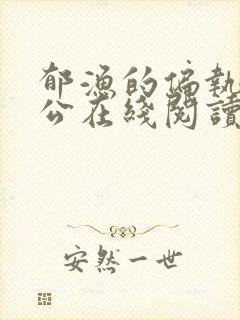 郁漁的偏執
公在綫閱讀
安然一世